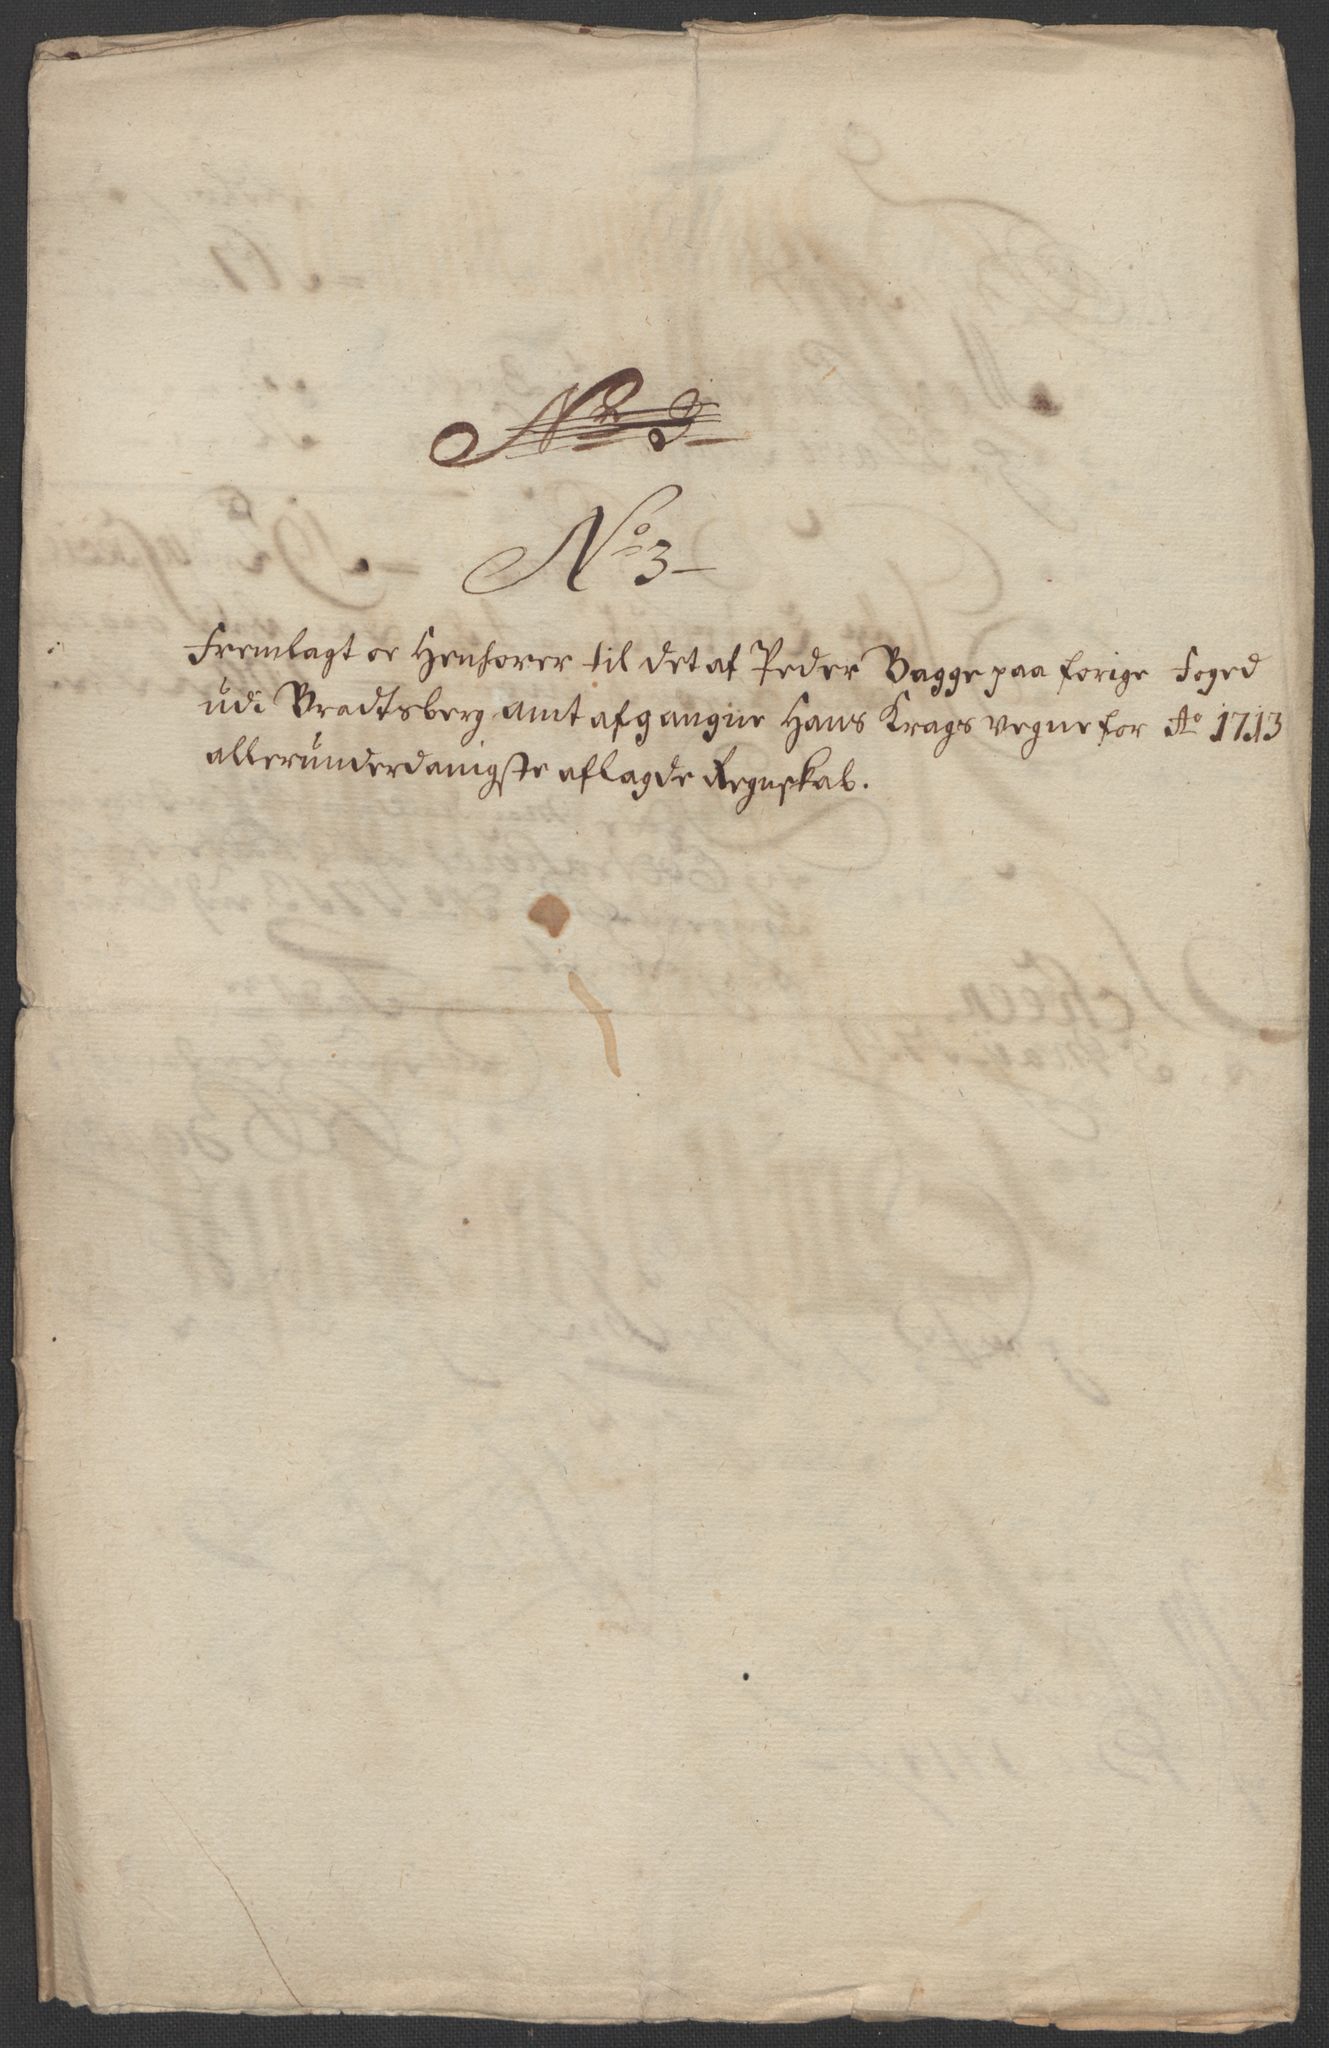 No 3
No 3
Fremlagt oc Henhører til det af Peder Bagge paa forige Foged
udi Bradtsberg amt afgangne Hans Krags vegne for Ao 1713
allerunderdanigste aflagde Regnskab.